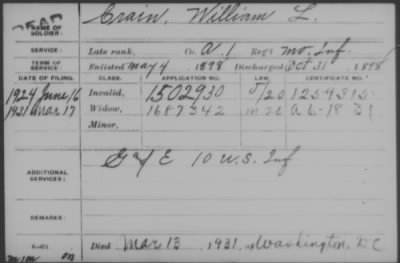 NAME OF SOLDIER: Crain, William L.
SERVICE: Late rank, Co. A. 1 Reg't Mo. Inf.
TERM OF SERVICE: Enlisted May 4, 1898 Discharged Oct 31, 1898
DATE OF FILING. CLASS. APPLICATION NO. LAW. CERTIFICATE NO.
1924 June 16 Invalid, 1502930
1931 Mar 17 Widow, 1687342
Minor,
ADDITIONAL SERVICES: G & E 10 U.S. Inf
REMARKS:
Died Mar. 13, 1931, at Washington, DC